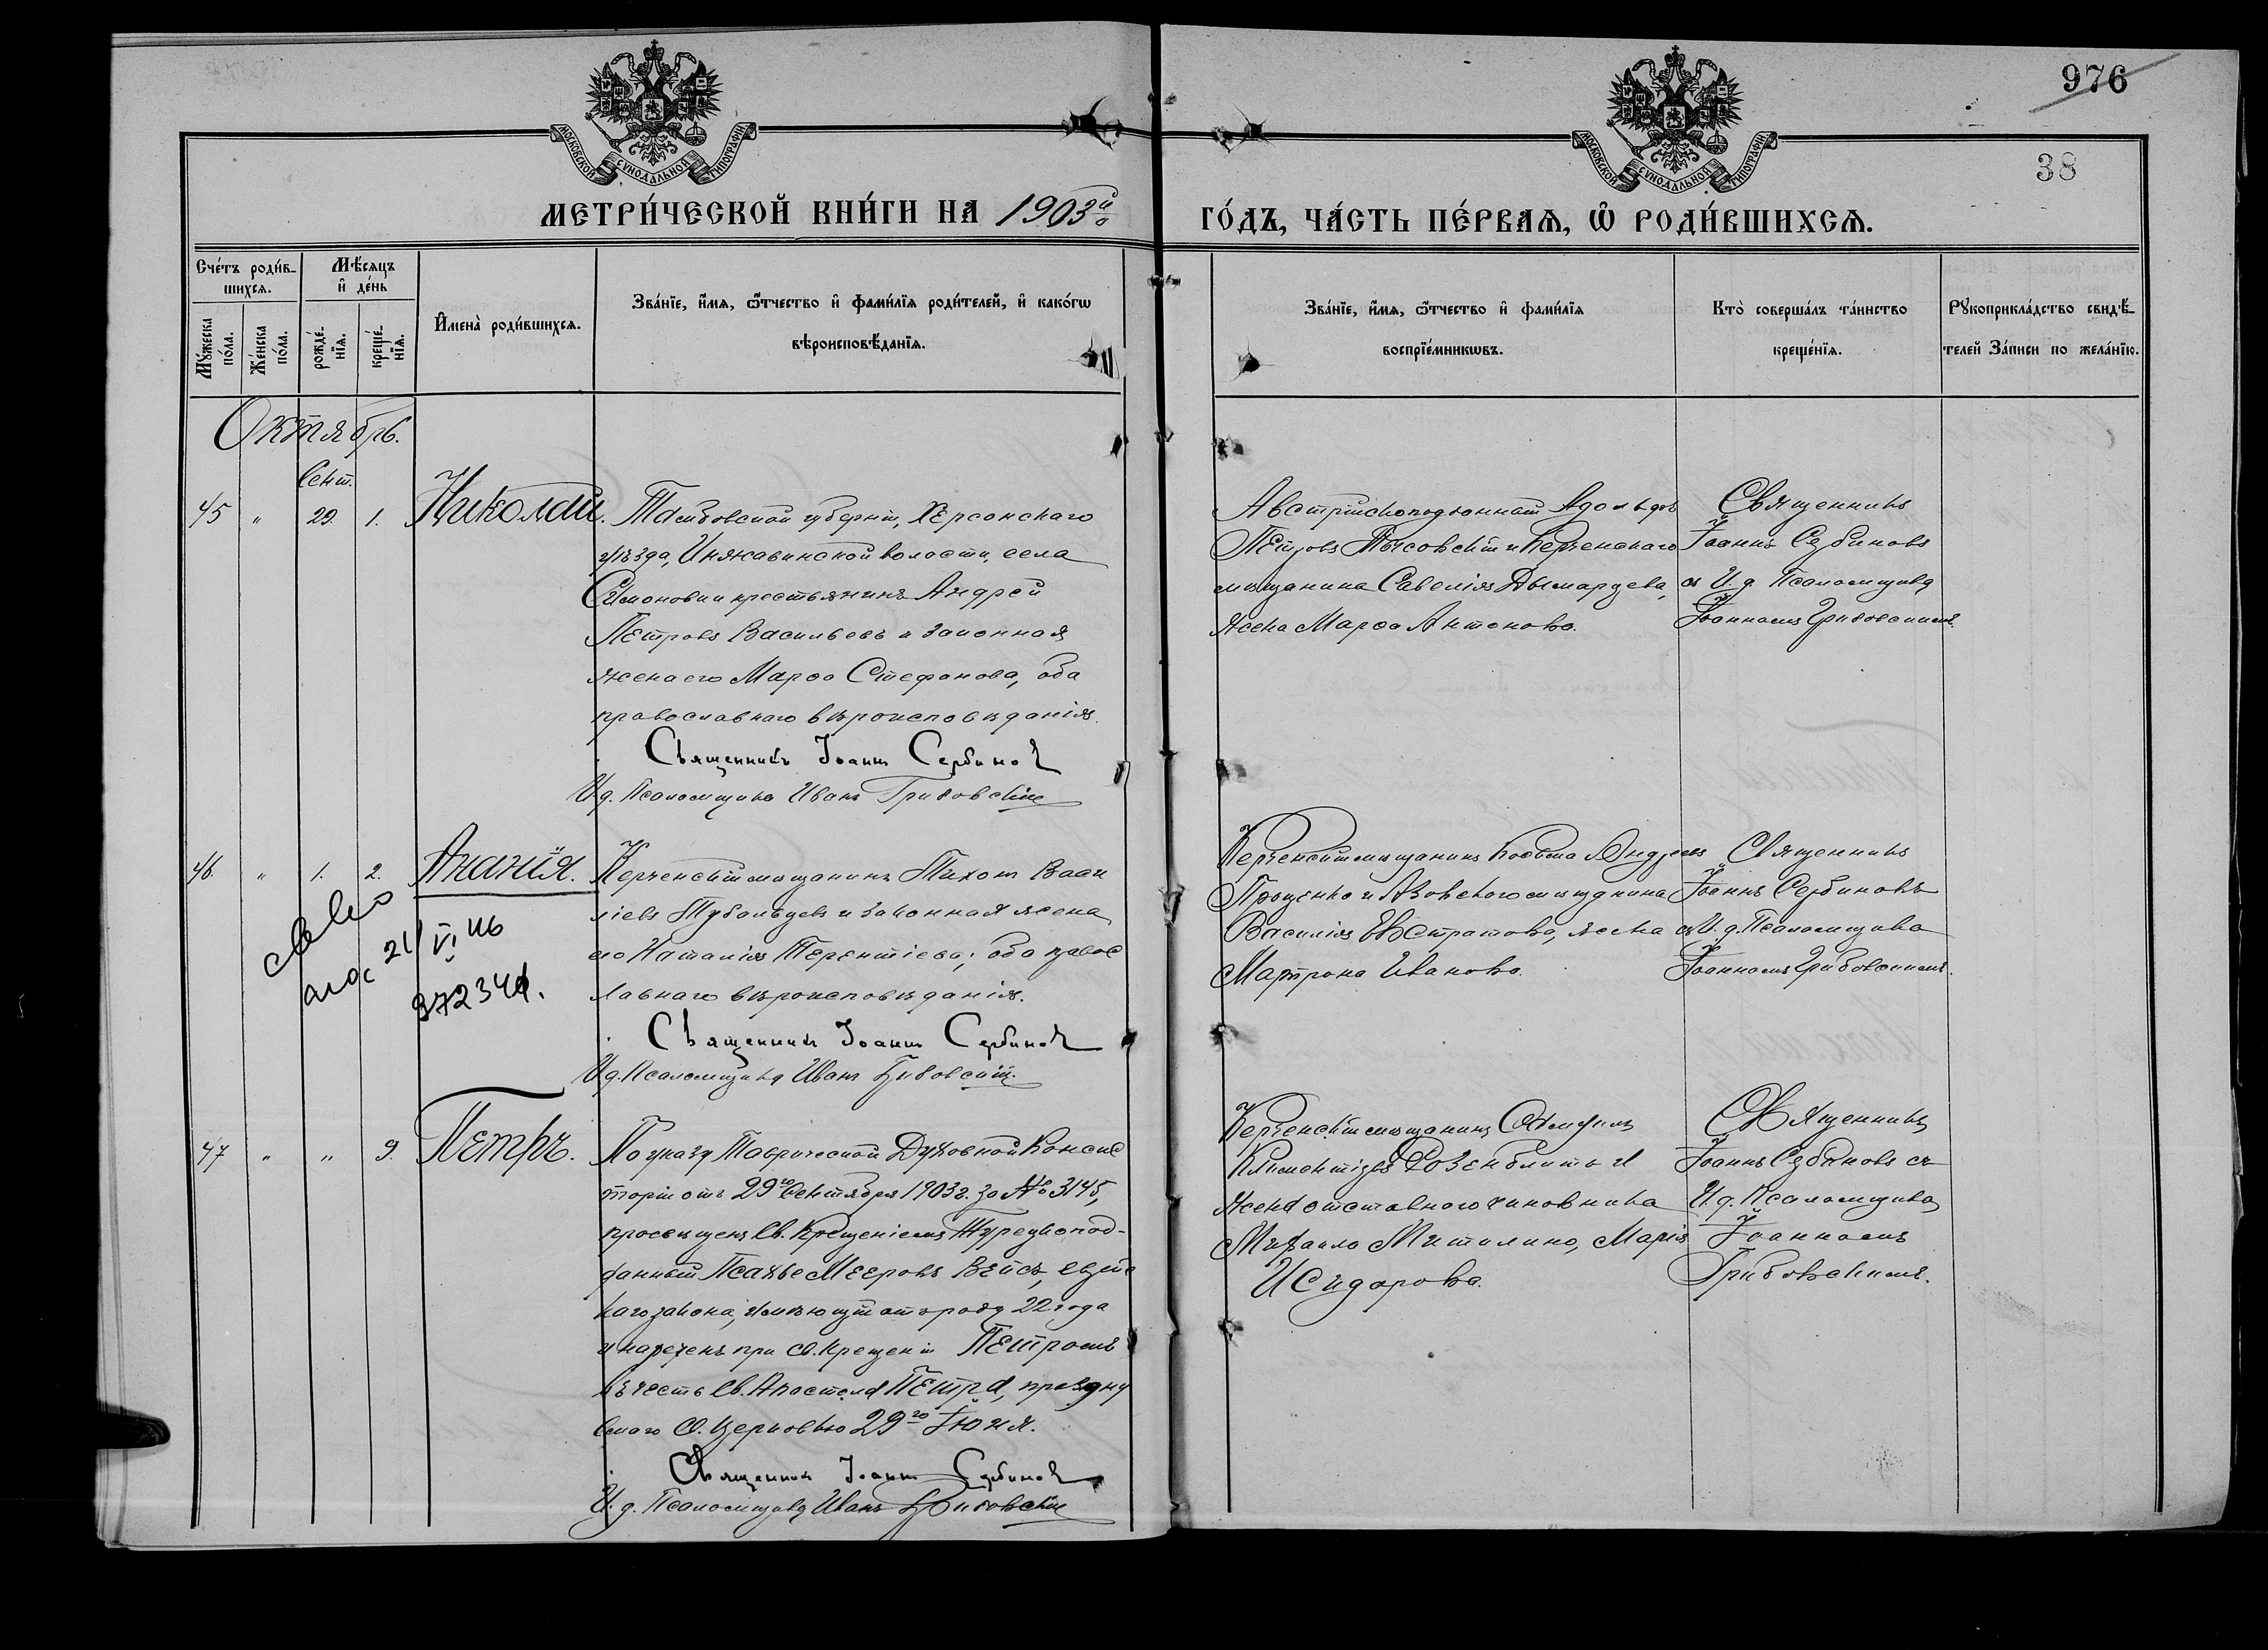 976
38
МОСКОВСКОЙ СѴНОДАЛЬНОЙ ТИПОГРАФІИ
МОСКОВСКОЙ СѴНОДАЛЬНОЙ ТИПОГРАФІИ
МЕТРИ́ЧЕСКОЙ КНИ́ГИ НА 1903й
ГО́ДЪ, ЧА́СТЬ ПЕ́РВАѦ, Ѡ҆ РОДИ́ВШИХСѦ.
Сче́тъ роди́в-
шихсѧ.
Му́жеска
по́ла.
Же́нска
по́ла.
Мѣ́сѧцъ
и҆ де́нь
рожде́-
нїѧ.
креще́-
нїѧ.
И҆мена̀ роди́вшихсѧ.
Зва́нїе, и҆́мѧ, ѻ҆́тчество и҆ фами́лїѧ роди́телей, и҆ како́гѡ
вѣроисповѣ́данїѧ.
Зва́нїе, и҆́мѧ, ѻ҆́тчество и҆ фами́лїѧ
воспрїе́мникѡвъ.
Кто̀ соверша́лъ та́инство
креще́нїѧ.
Рꙋкоприкла́дство свидѣ́-
телей За́писи по жела́нїю.
Октябрь.
Сент.
45 " 29. 1. Николай.
Тамбовской губерніи, Херсонскаго
уѣзда, Инжавинской волости, села
Симоновки крестьянинъ Андрей
Петровъ Васильевъ и законная
жена его Марѳа Стефанова, оба
православнаго вѣроисповѣданія.
Священникъ Іоаннъ Сербиновъ
И. д. Псаломщика Иванъ Грибовскій
Австрійскоподданный Адольфъ
Петровъ и Керченскаго
мѣщанина Савелія Дымарцева,
жена Марѳа Антонова.
Священникъ
Іоаннъ Сербиновъ
съ И. д. Псаломщика
Іоанномъ Грибовскимъ.
46. " 1. 2. Ананія.
Керченскій мѣщанинъ Тихон Васи
ліевъ и законная жена
его Наталія Терентіева; оба правос
лавнаго вѣроисповѣданія.
Священникъ Іоаннъ Сербиновъ
И. д. Псаломщика Иванъ Грибовскій.
Керченскій мѣщанинъ Косьма Андреевъ
Проценко и Азовскаго мѣщанина
Василія Евстратова, жена
Матрона Иванова.
Священникъ
Іоаннъ Сербиновъ
съ И. д. Псаломщика
Іоанномъ Грибовскимъ.
21/VI 46
372341.
47 " " 9. Петръ.
По указу Таврической Духовной Консис
торіи отъ 29го Сентября 1903 г. за № 3145,
просвѣщенъ Св. Крещеніемъ Турецкопод-
данный Мееровъ Вейсъ, еврейс
каго закона, имѣющій отъ роду 22 года
и нареченъ при св. крещеніи Петромъ
въ честь Св. Апостола Петра, праздну
емаго Св. Церковью 29го Іюня.
Священникъ Іоаннъ Сербиновъ
И. д. Псаломщика Иванъ Грибовскій
Керченскій мѣщанинъ
Климентіевъ Розенблитъ и
жена отставного чиновника
Михаила Митилино, Марія
Исидорова.
Священникъ
Іоаннъ Сербиновъ съ
И. д. Псаломщика
Іоанномъ
Грибовскимъ.